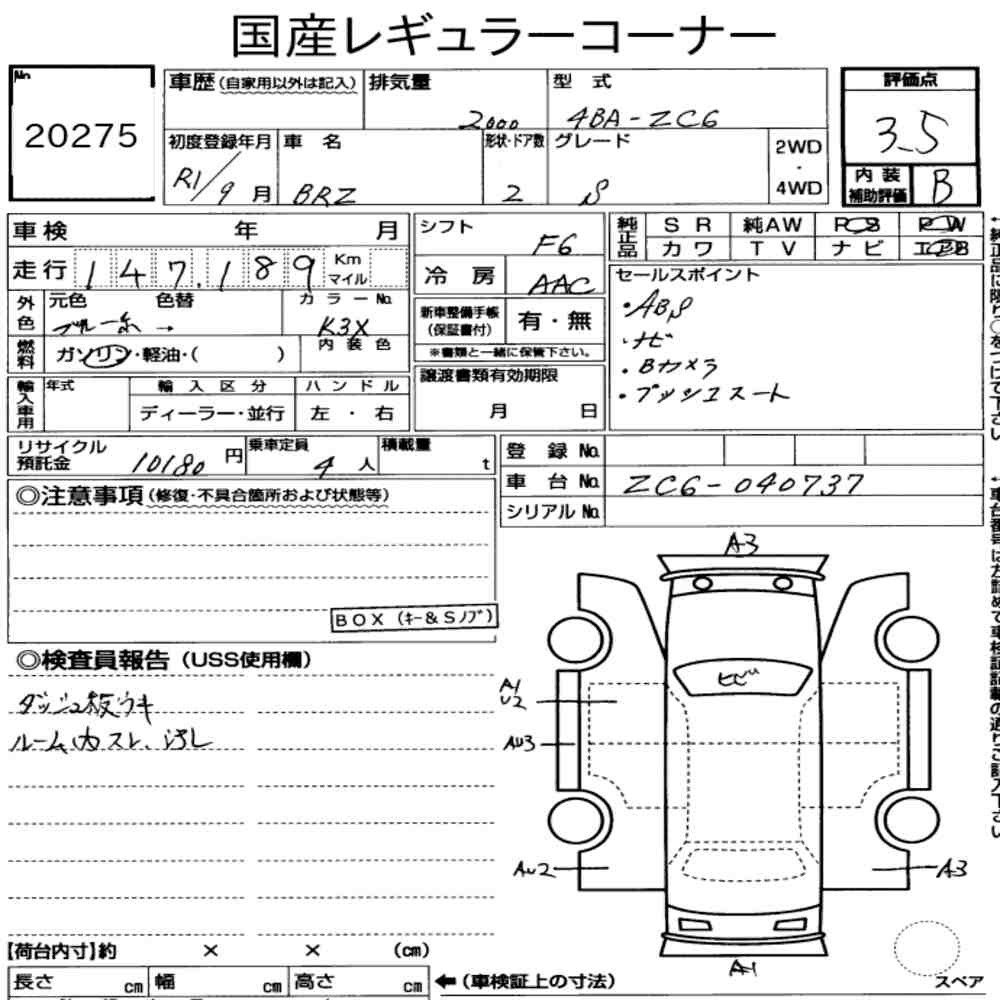 国産レギュラーコーナー
No.
20275
車歴 (自家用以外は記入) 排気量 2000 型式 4BA-ZC6
初度登録年月 R1/9月 車名 BRZ 形状・ドア数 2 グレード S 2WD・4WD
評価点 3.5
内装補助評価 B
車検 年 月
走行 147,189 Km マイル
外色 元色 ブルー系 → 色替 カラーNo. K3X
燃料 ガソリン・軽油・( ) 内装色
輸入車用 年式 輸入区分 ディーラー・並行 ハンドル 左・右
シフト F6
冷房 AAC
新車整備手帳(保証書付) 有・無
※書類と一緒に保管下さい。
譲渡書類有効期限
月 日
純正品 SR 純AW PS PW
カワ TV ナビ エアB
セールスポイント
・ABS
・ナビ
・Bカメラ
・プッシュスタート
リサイクル預託金 10180円 乗車定員 4人 積載量 t
登録No.
車台No. ZC6-040737
シリアルNo.
◎注意事項(修復・不具合箇所および状態等)
BOX (キー&Sノブ)
◎検査員報告(USS使用欄)
ダッシュ板ウキ
ルーム内スレ、汚レ
A3
ヒビ
A1
U2
AU3
AU2
A3
A1
スペア
【荷台内寸】約 × × (cm)
長さ cm 幅 cm 高さ cm
←(車検証上の寸法)